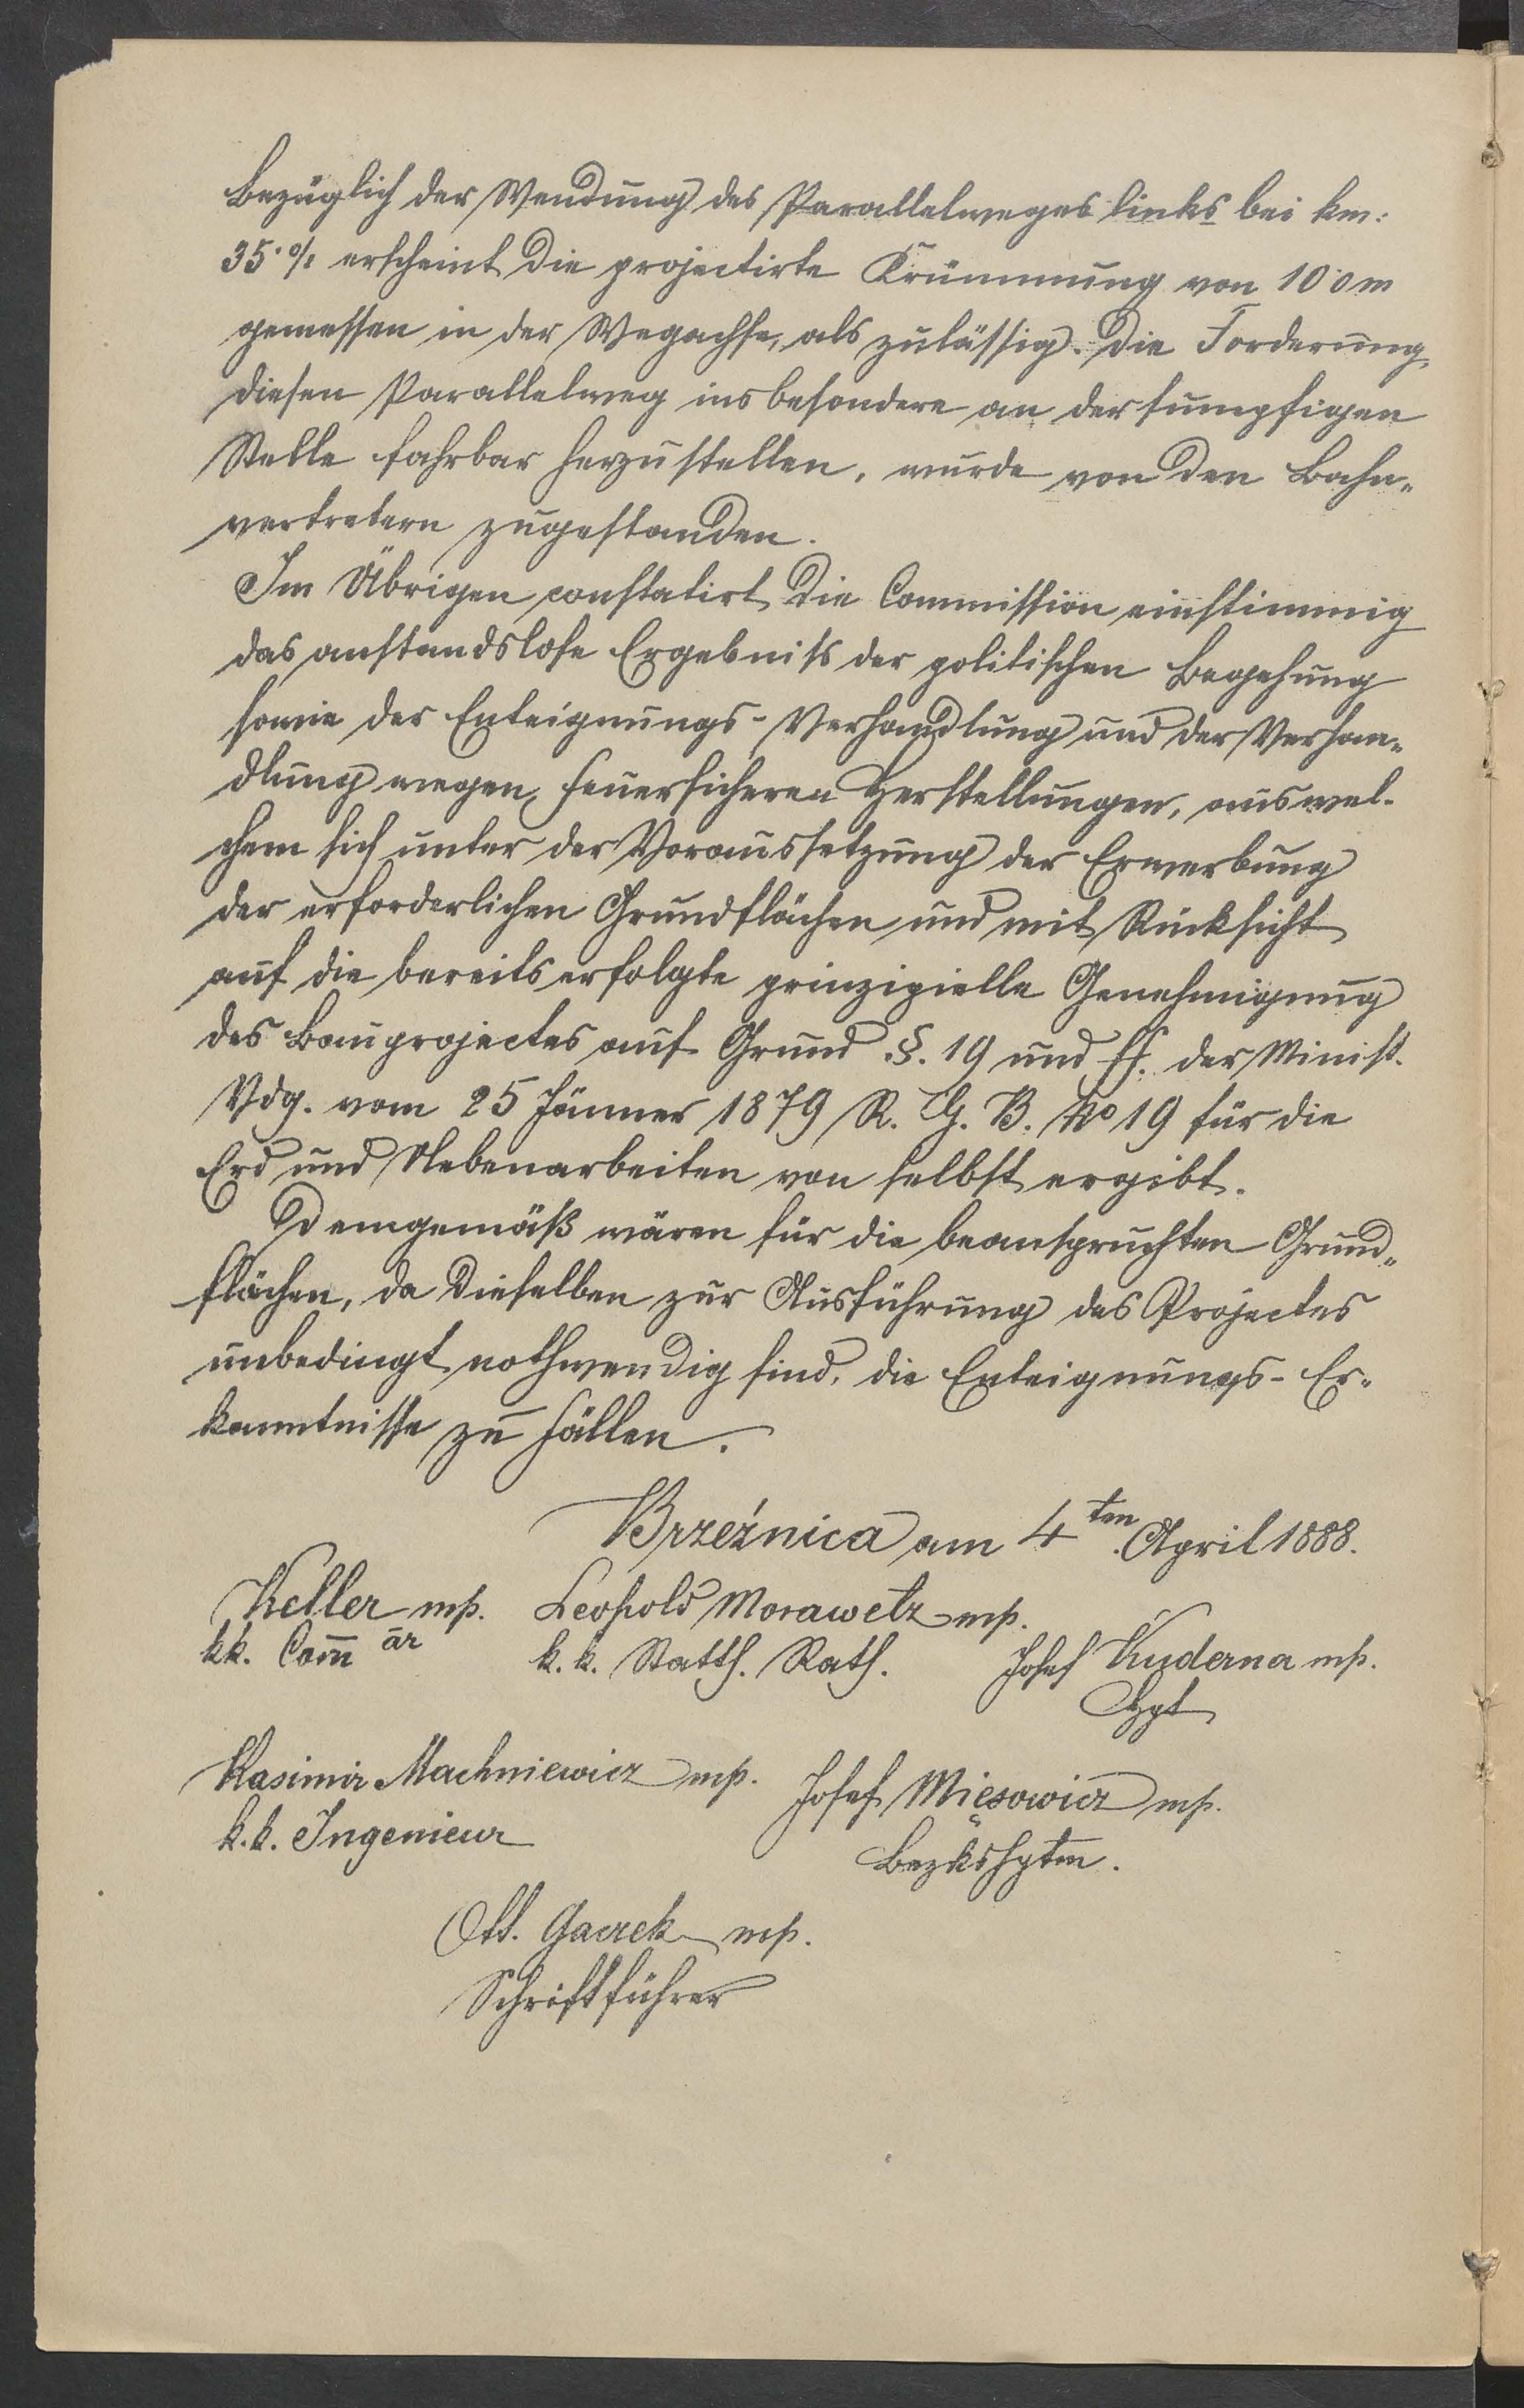 Bezüglich der Wendung des Parallelweges links bei km:
35·0/1 erscheint die projectirte Krümmung von 10·0 m
gemessen in der Wegachse, als zulässig. Die Forderung,
diesen Parallelweg insbesondere an der sumpfigen
Stelle fahrbar herzustellen, wurde von den Bahn„
vertretern zugestanden.
Im Übrigen constatirt die Commission einstimmig
das anstandslose Ergebniß der politischen Begehung
sowie der Enteignungs-Verhandlung und der Verhan„
dlung wegen feuersicheren Herstellungen, aus wel-
chem sich unter der Voraussetzung der Erwerbung
der erforderlichen Grundflächen und mit Rücksicht
auf die bereits erfolgte prinzipielle Genehmigung
des Bauprojectes auf Grund §. 19 und ff. der Minist.
Vdg. vom 25 Jänner 1879 R. G. B. No 19 für die
Erd und Nebenarbeiten von selbst ergibt.
Demgemäß wären für die beanspruchten Grund„
flächen, da dieselben zur Ausführung des Projectes
unbedingt nothwendig sind, die Enteignungs-Er„
kenntnisse zu fällen.
Brzeźnica am 4ten April 1888.
Keller mp. Leopold Morawetz mp.
kk. Com̄ är k. k. Statth. Rath. Josef Kuderna mp.
Hpt
Kasimir Machniewicz mp. Josef Mięsowicz mp.
k.k. Ingenieur Bezkshptm.
Ott. Gacrek mp.
Schriftführer